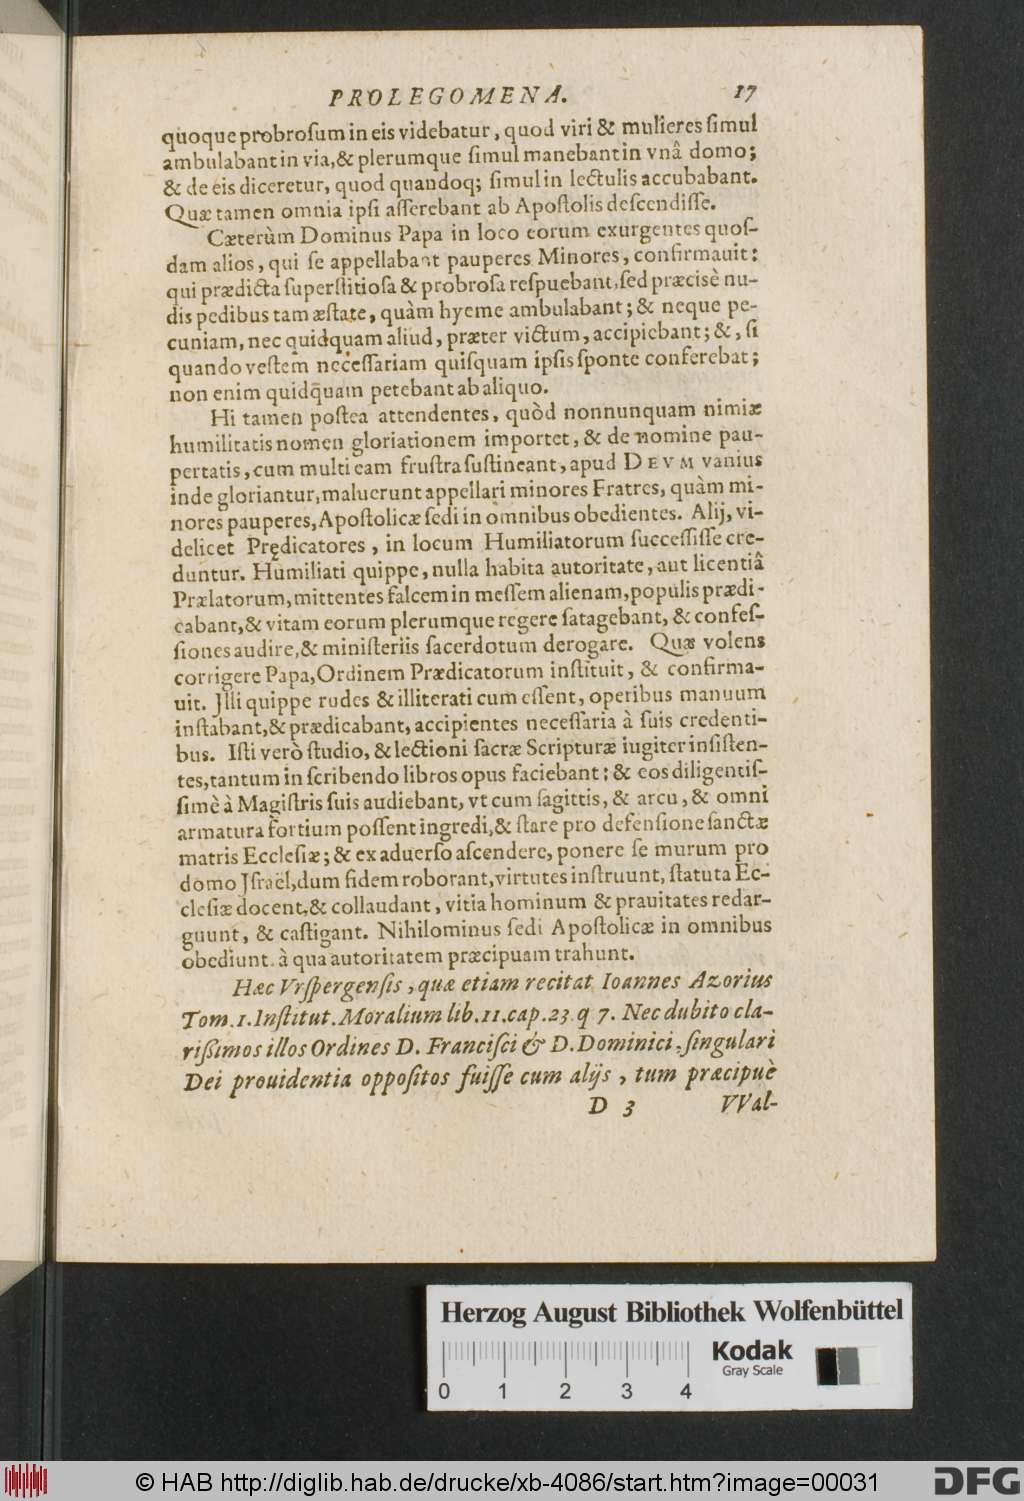 PROLEGOMENA. 17
quoque probroſum in eis videbatur, quod viri & mulieres ſimul
ambulabant in via, & plerumque ſimul manebant in vnâ domo;
& de eis diceretur, quod quandoq; ſimul in lectulis accubabant.
Quæ tamen omnia ipſi aſſerebant ab Apoſtolis deſcendiſſe.
Cæterùm Dominus Papa in loco eorum exurgentes quoſ-
dam alios, qui ſe appellabant pauperes Minores, confirmauit:
qui prædicta ſuperſtitioſa & probroſa reſpuebant, ſed præcisè nu-
dis pedibus tam æſtate, quàm hyeme ambulabant; & neque pe-
cuniam, nec quidquam aliud, præter victum, accipiebant; &, ſi
quando veſtem neceſſariam quiſquam ipſis ſponte conferebat;
non enim quidq̃uam petebant ab aliquo.
Hi tamen poſtea attendentes, quòd nonnunquam nimiæ
humilitatis nomen gloriationem importet, & de nomine pau-
pertatis, cum multi eam fruſtra ſuſtineant, apud DEVM vanius
inde gloriantur, maluerunt appellari minores Fratres, quàm mi-
nores pauperes, Apoſtolicæ ſedi in omnibus obedientes. Alij, vi-
delicet Prędicatores, in locum Humiliatorum ſucceſſiſſe cre-
duntur. Humiliati quippe, nulla habita autoritate, aut licentiâ
Prælatorum, mittentes falcem in meſſem alienam, populis prædi-
cabant, & vitam eorum plerumque regere ſatagebant, & confeſ-
ſiones audire, & miniſteriis ſacerdotum derogare. Quæ volens
corrigere Papa, Ordinem Prædicatorum inſtituit, & confirma-
uit. Jlli quippe rudes & illiterati cum eſſent, operibus manuum
inſtabant, & prædicabant, accipientes neceſſaria à ſuis credenti-
bus. Iſti verò ſtudio, & lectioni ſacræ Scripturæ iugiter inſiſten-
tes, tantum in ſcribendo libros opus faciebant: & eos diligentiſ-
ſimè à Magiſtris ſuis audiebant, vt cum ſagittis, & arcu, & omni
armatura fortium poſſent ingredi, & ſtare pro defenſione ſanctæ
matris Eccleſiæ; & ex aduerſo aſcendere, ponere ſe murum pro
domo Jſraël, dum fidem roborant, virtutes inſtruunt, ſtatuta Ec-
cleſiæ docent, & collaudant, vitia hominum & prauitates redar-
guunt, & caſtigant. Nihilominus ſedi Apoſtolicæ in omnibus
obediunt. à qua autoritatem præcipuam trahunt.
Hæc Vrſpergenſis, quæ etiam recitat Ioannes Azorius
Tom. 1. Inſtitut. Moralium lib. 11. cap. 23. q 7. Nec dubito cla-
rißimos illos Ordines D. Franciſci & D. Dominici, ſingulari
Dei prouidentia oppoſitos fuiſſe cum alijs, tum præcipuè
D 3 VVal-
Herzog August Bibliothek Wolfenbüttel
Kodak
Gray Scale
0 1 2 3 4
© HAB http://diglib.hab.de/drucke/xb-4086/start.htm?image=00031
DFG